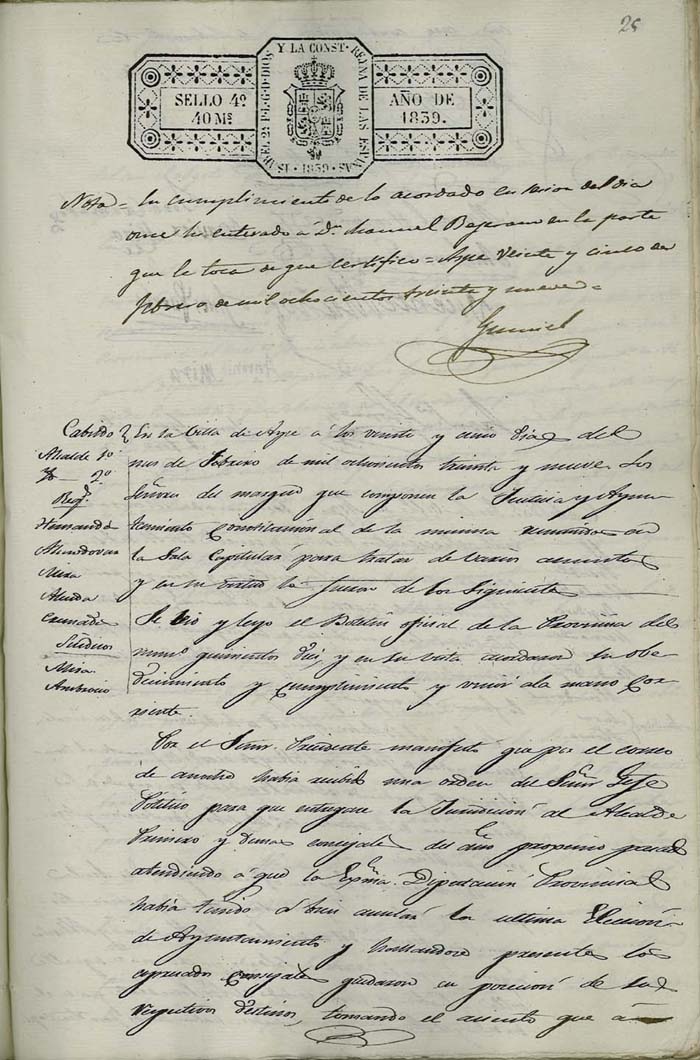 25
SELLO 4º
40 Mˢ
ISABEL 2ª P.L.G.D.DIOS Y LA CONST. REYNA DE LAS ESPAÑAS
1839
AÑO DE
1839.
Nota = En cumplimiento de lo acordado en sesion del dia
once he enterado á Dn. Manuel Bejerano en la parte
que le toca de que certifico = Aspe Veinte y cinco de
febrero de mil ochocientos treinta y nueve =
Gumiel
Cabildo
Alcalde 1º
Yd. 2º
Regs.
Hernandez
Mira
Almda
Sindicos
Mira
Ambrocio
En la Villa de Aspe á los veinte y cinco dias del
mes de Febrero de mil ochocientos treinta y nueve. Los
Señores del margen que componen la Justicia y Ayun
tamiento Constitucional de la misma reunidos en
la Sala Capitular para tratar de varios asuntos
y en su virtud lo fueron de los siguientes
Se vio y leyo el Boletin oficial de la Provincia del
num.º quinientos diez y en su vista acordaron su obe
decimiento y cumplimiento y unir á la mano cor
riente.
Por el Señor Presidente manifestó que por el correo
de anoche habia recibido una orden del Señor Gefe
Politico para que entregare la Jurisdicion al Alcalde
Primero y demas concejales del año proprimo pasado
atendiendo á que la Exma. Diputacion Provincial
habia tenido á bien anular la ultima Eleccion
de Ayuntamiento y hallandose presentes los
espresados concejales quedaron en posicion de sus
respectivos destinos, tomando el asiento que á